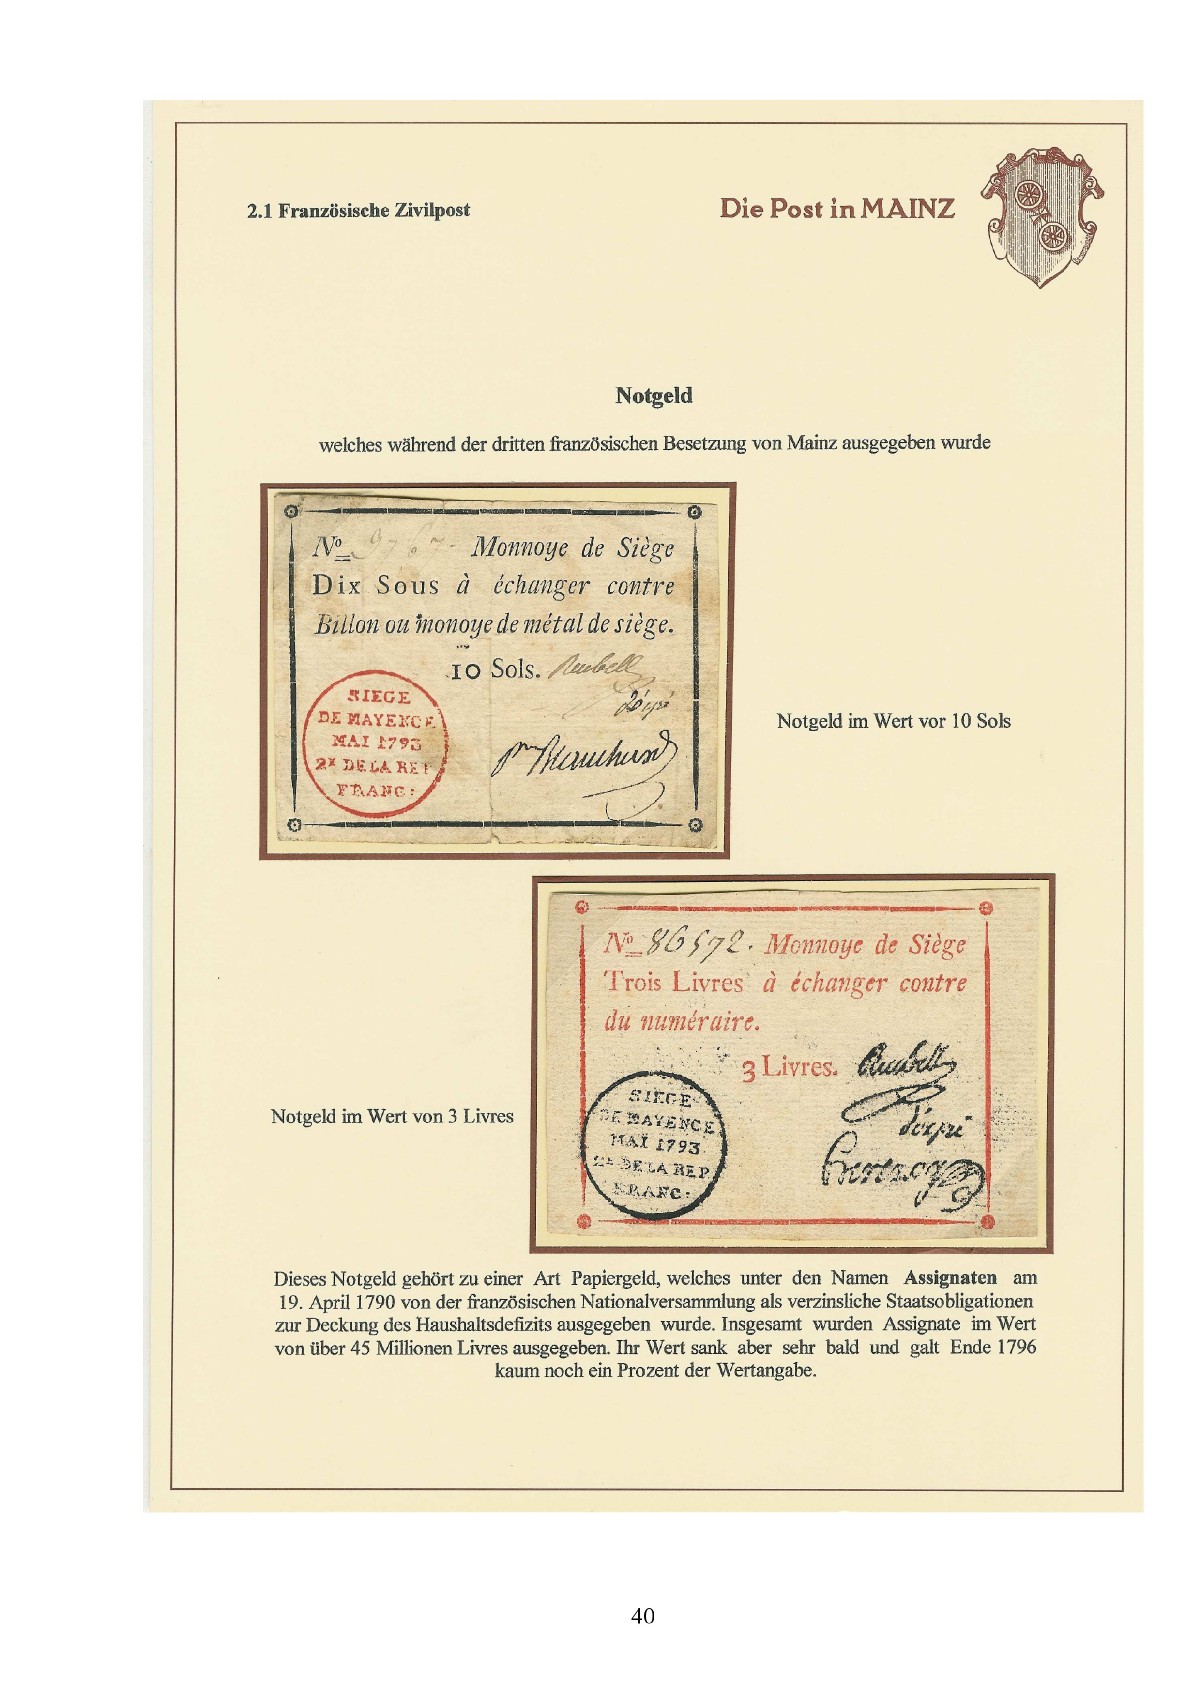 2.1 Französische Zivilpost
Die Post in MAINZ
Notgeld
welches während der dritten französischen Besetzung von Mainz ausgegeben wurde
No 9767- Monnoye de Siège
Dix Sous à échanger contre
Billon ou monoye de métal de siège.
10 Sols. Reubell
SIEGE
DE MAYENCE
MAI 1793
2e DE LA REP
FRANC:
Notgeld im Wert vor 10 Sols
No 86572. Monnoye de Siège
Trois Livres à échanger contre
du numéraire.
3 Livres. Reubell
SIEGE
DE MAYENCE
MAI 1793
2e DE LA REP
FRANC:
Notgeld im Wert von 3 Livres
Dieses Notgeld gehört zu einer Art Papiergeld, welches unter den Namen Assignaten am
19. April 1790 von der französischen Nationalversammlung als verzinsliche Staatsobligationen
zur Deckung des Haushaltsdefizits ausgegeben wurde. Insgesamt wurden Assignate im Wert
von über 45 Millionen Livres ausgegeben. Ihr Wert sank aber sehr bald und galt Ende 1796
kaum noch ein Prozent der Wertangabe.
40